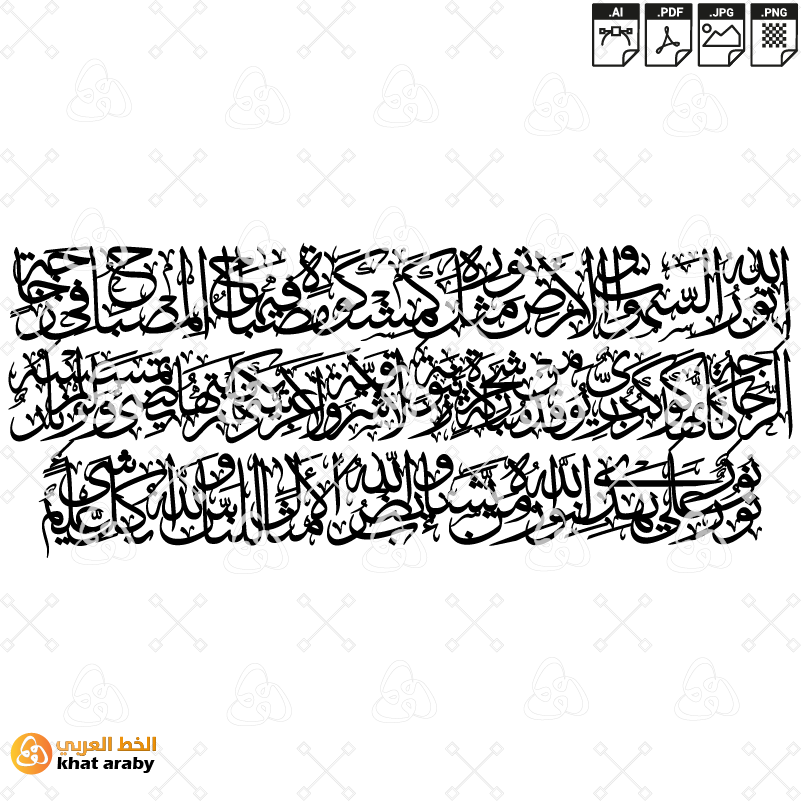 .AI .PDF .JPG .PNG
الله نور السموات والأرض مثل نوره كمشكوة فيها مصباح المصباح في زجاجة
الزجاجة كأنها كوكب دري يوقد من شجرة مبركة زيتونة لا شرقية ولا غربية يكاد زيتها يضيء ولو لم تمسسه نار
نور على نور يهدي الله لنوره من يشاء ويضرب الله الأمثل للناس والله بكل شيء عليم
الخط العربي
khat araby